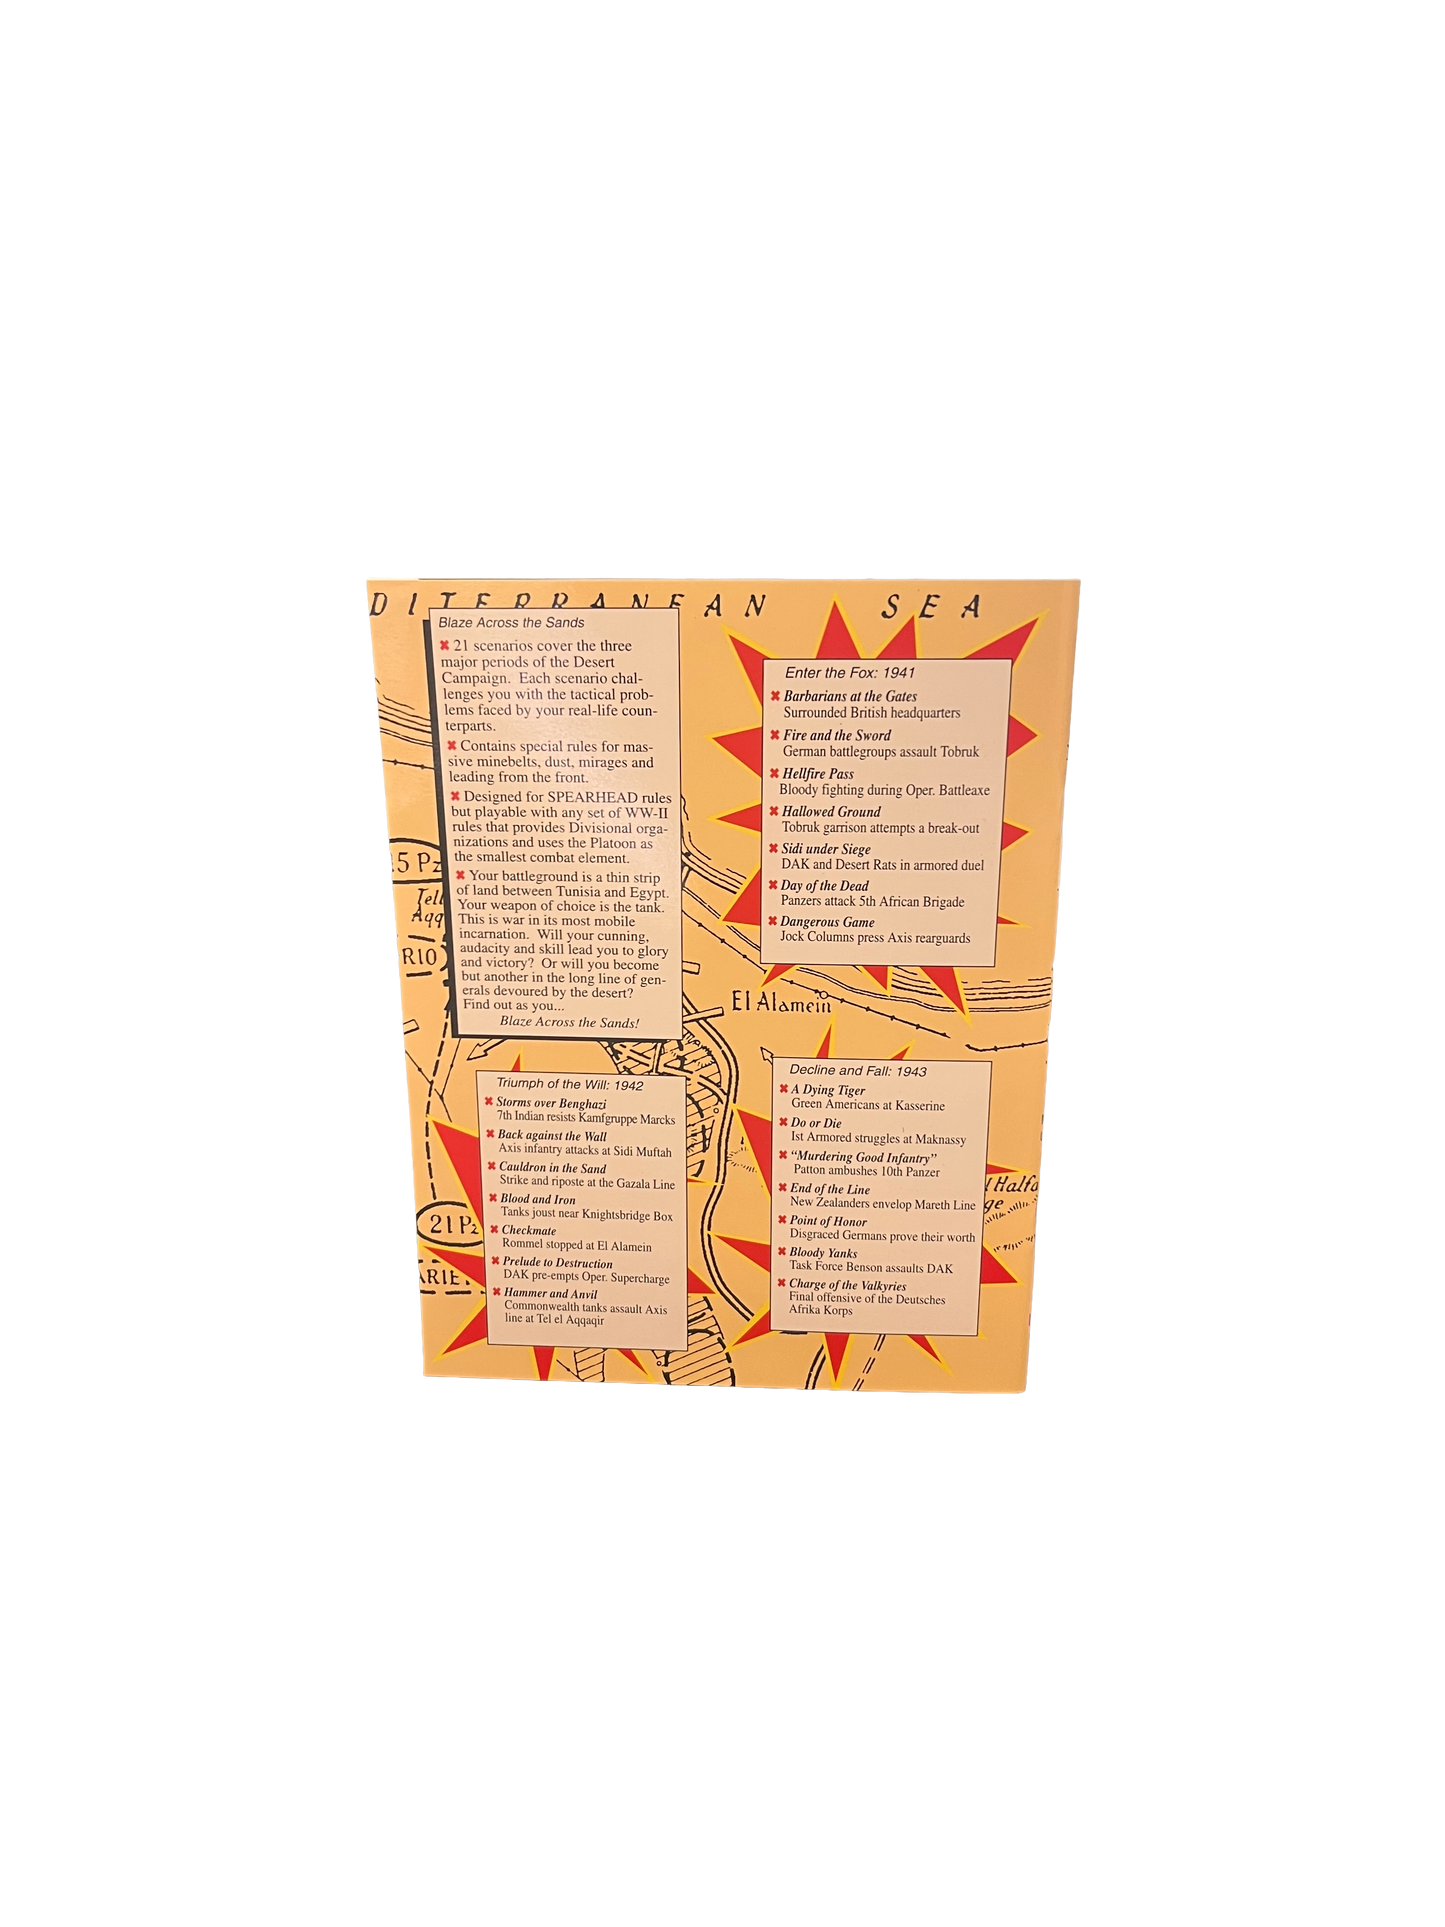 DITERRANEAN SEA
Blaze Across the Sands
✖ 21 scenarios cover the three
major periods of the Desert
Campaign. Each scenario chal-
lenges you with the tactical prob-
lems faced by your real-life coun-
terparts.
✖ Contains special rules for mas-
sive minebelts, dust, mirages and
leading from the front.
✖ Designed for SPEARHEAD rules
but playable with any set of WW-II
rules that provides Divisional orga-
nizations and uses the Platoon as
the smallest combat element.
✖ Your battleground is a thin strip
of land between Tunisia and Egypt.
Your weapon of choice is the tank.
This is war in its most mobile
incarnation. Will your cunning,
audacity and skill lead you to glory
and victory? Or will you become
but another in the long line of gen-
erals devoured by the desert?
Find out as you...
Blaze Across the Sands!
Enter the Fox: 1941
✖ Barbarians at the Gates
Surrounded British headquarters
✖ Fire and the Sword
German battlegroups assault Tobruk
✖ Hellfire Pass
Bloody fighting during Oper. Battleaxe
✖ Hallowed Ground
Tobruk garrison attempts a break-out
✖ Sidi under Siege
DAK and Desert Rats in armored duel
✖ Day of the Dead
Panzers attack 5th African Brigade
✖ Dangerous Game
Jock Columns press Axis rearguards
5 Pz
Tell
Aqq
RIO
El Alamein
Triumph of the Will: 1942
✖ Storms over Benghazi
7th Indian resists Kamfgruppe Marcks
✖ Back against the Wall
Axis infantry attacks at Sidi Muftah
✖ Cauldron in the Sand
Strike and riposte at the Gazala Line
✖ Blood and Iron
Tanks joust near Knightsbridge Box
✖ Checkmate
Rommel stopped at El Alamein
✖ Prelude to Destruction
DAK pre-empts Oper. Supercharge
✖ Hammer and Anvil
Commonwealth tanks assault Axis
line at Tel el Aqqaqir
Decline and Fall: 1943
✖ A Dying Tiger
Green Americans at Kasserine
✖ Do or Die
Ist Armored struggles at Maknassy
✖ “Murdering Good Infantry”
Patton ambushes 10th Panzer
✖ End of the Line
New Zealanders envelop Mareth Line
✖ Point of Honor
Disgraced Germans prove their worth
✖ Bloody Yanks
Task Force Benson assaults DAK
✖ Charge of the Valkyries
Final offensive of the Deutsches
Afrika Korps
21 Pz
ARIE
Halfa
ge